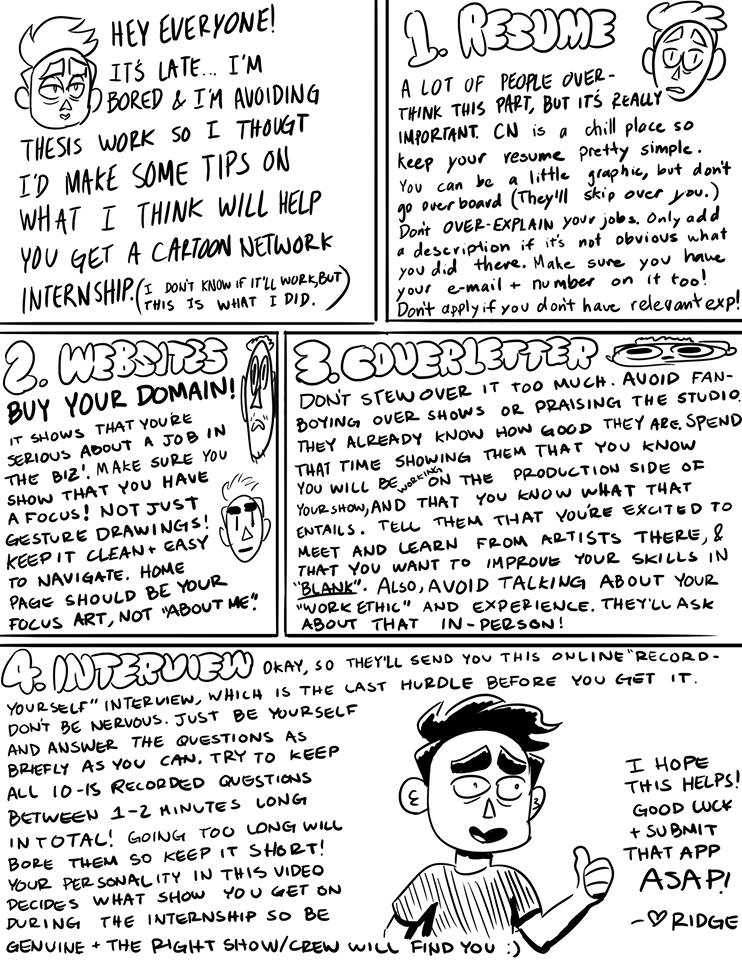 HEY EVERYONE!
IT'S LATE... I'M
BORED & I'M AVOIDING
THESIS WORK SO I THOUGT
I'D MAKE SOME TIPS ON
WHAT I THINK WILL HELP
YOU GET A CARTOON NETWORK
INTERNSHIP. (I DON'T KNOW IF IT'LL WORK, BUT
THIS IS WHAT I DID.)
1. RESUME
A LOT OF PEOPLE OVER-
THINK THIS PART, BUT IT'S REALLY
IMPORTANT. CN is a chill place so
keep your resume pretty simple.
You can be a little graphic, but don't
go overboard (They'll skip over you.)
Don't OVER-EXPLAIN your jobs. Only add
a description if it's not obvious what
you did there. Make sure you have
your e-mail + number on it too!
Don't apply if you don't have relevant exp!
2. WEBSITES
BUY YOUR DOMAIN!
IT SHOWS THAT YOU'RE
SERIOUS ABOUT A JOB IN
THE BIZ'. MAKE SURE YOU
SHOW THAT YOU HAVE
A FOCUS! NOT JUST
GESTURE DRAWINGS!
KEEP IT CLEAN + EASY
TO NAVIGATE. HOME
PAGE SHOULD BE YOUR
FOCUS ART, NOT "ABOUT ME".
3. COVERLETTER
DON'T STEW OVER IT TOO MUCH. AVOID FAN-
BOYING OVER SHOWS OR PRAISING THE STUDIO.
THEY ALREADY KNOW HOW GOOD THEY ARE. SPEND
THAT TIME SHOWING THEM THAT YOU KNOW
YOU WILL BE WORKING ON THE PRODUCTION SIDE OF
YOUR SHOW, AND THAT YOU KNOW WHAT THAT
ENTAILS. TELL THEM THAT YOU'RE EXCITED TO
MEET AND LEARN FROM ARTISTS THERE, &
THAT YOU WANT TO IMPROVE YOUR SKILLS IN
"BLANK". ALSO, AVOID TALKING ABOUT YOUR
"WORK ETHIC" AND EXPERIENCE. THEY'LL ASK
ABOUT THAT IN-PERSON!
4. INTERVIEW OKAY, SO THEY'LL SEND YOU THIS ONLINE "RECORD-
YOURSELF" INTERVIEW, WHICH IS THE LAST HURDLE BEFORE YOU GET IT.
DON'T BE NERVOUS. JUST BE YOURSELF
AND ANSWER THE QUESTIONS AS
BRIEFLY AS YOU CAN. TRY TO KEEP
ALL 10-15 RECORDED QUESTIONS
BETWEEN 1-2 MINUTES LONG
IN TOTAL! GOING TOO LONG WILL
BORE THEM SO KEEP IT SHORT!
YOUR PERSONALITY IN THIS VIDEO
DECIDES WHAT SHOW YOU GET ON
DURING THE INTERNSHIP SO BE
GENUINE + THE RIGHT SHOW/CREW WILL FIND YOU :)
I HOPE
THIS HELPS!
GOOD LUCK
+ SUBMIT
THAT APP
ASAP!
-♡ RIDGE